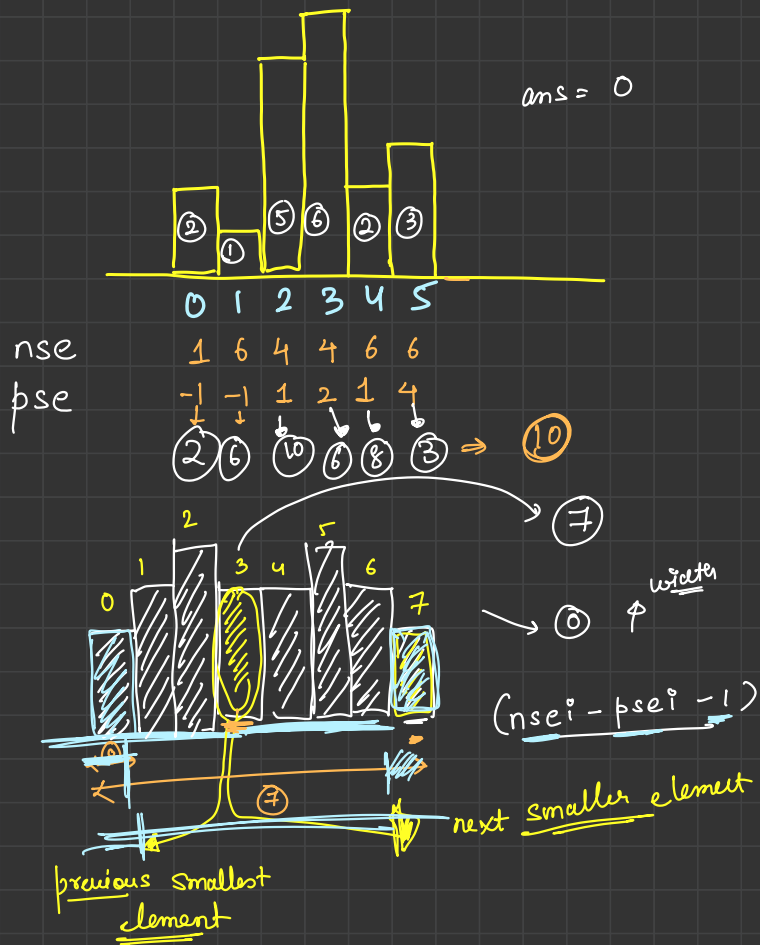 ans = 0
2 1 5 6 2 3
0 1 2 3 4 5
nse 1 6 4 4 6 6
pse -1 -1 1 2 1 4
2 6 10 6 8 3 ⇒ 10
7
0 1 2 3 4 5 6 7
0 width
(nsei - psei - 1)
0
7
next smaller element
previous smallest
element